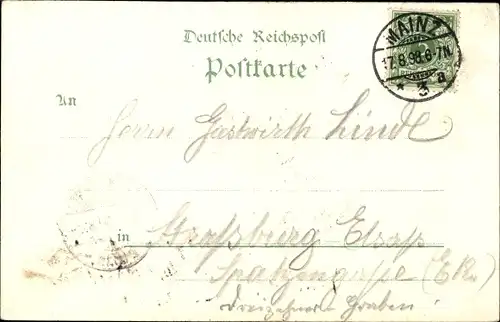 Deutsche Reichspost
Postkarte
MAINZ
17.8.98.6-7N.
* 3 a
An
Herrn Gastwirth Lindl
in Straßburg Elsaß
Spatzengasse (Ek.)
Dreizehner Graben